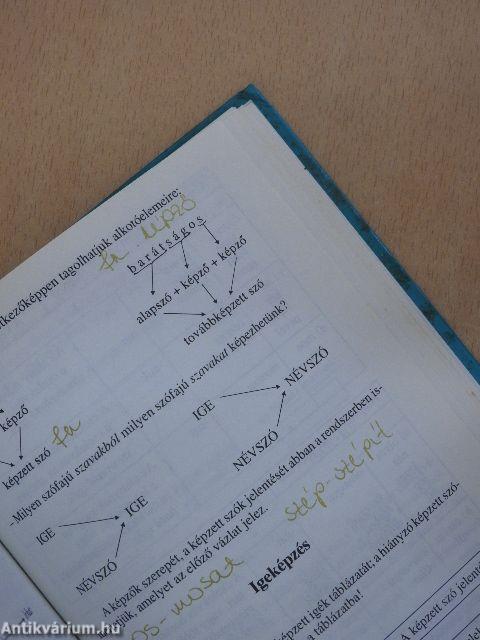 tkezőképpen tagolhatjuk alkotóelemeire:
fa képző
barátságos
alapszó + képző + képző
továbbképzett szó
képző
képzett szó fa
-Milyen szófajú szavakból milyen szófajú szavakat képezhetünk?
IGE NÉVSZÓ
NÉVSZÓ
IGE IGE
NÉVSZÓ
A képzők szerepét, a képzett szók jelentését abban a rendszerben is-
jük, amelyet az előző vázlat jelez. szép-szépít
os-mosat
Igeképzés
képzett igék táblázatát; a hiányzó képzett szó-
táblázatba!
képzett szó jelent
Antikvárium.hu